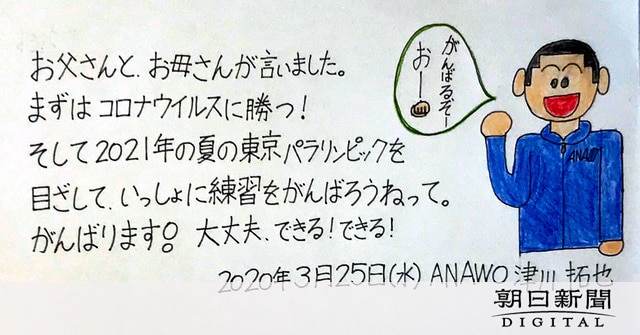 お父さんと、お母さんが言いました。
まずはコロナウイルスに勝つ！
そして2021年の夏の東京パラリンピックを
目ざして、いっしょに練習をがんばろうねって。
がんばります。大丈夫、できる！できる！
2020年3月25日(水) ANAWO 津川 拓也
がんばるぞー
おー
ANAWO
朝日新聞
DIGITAL